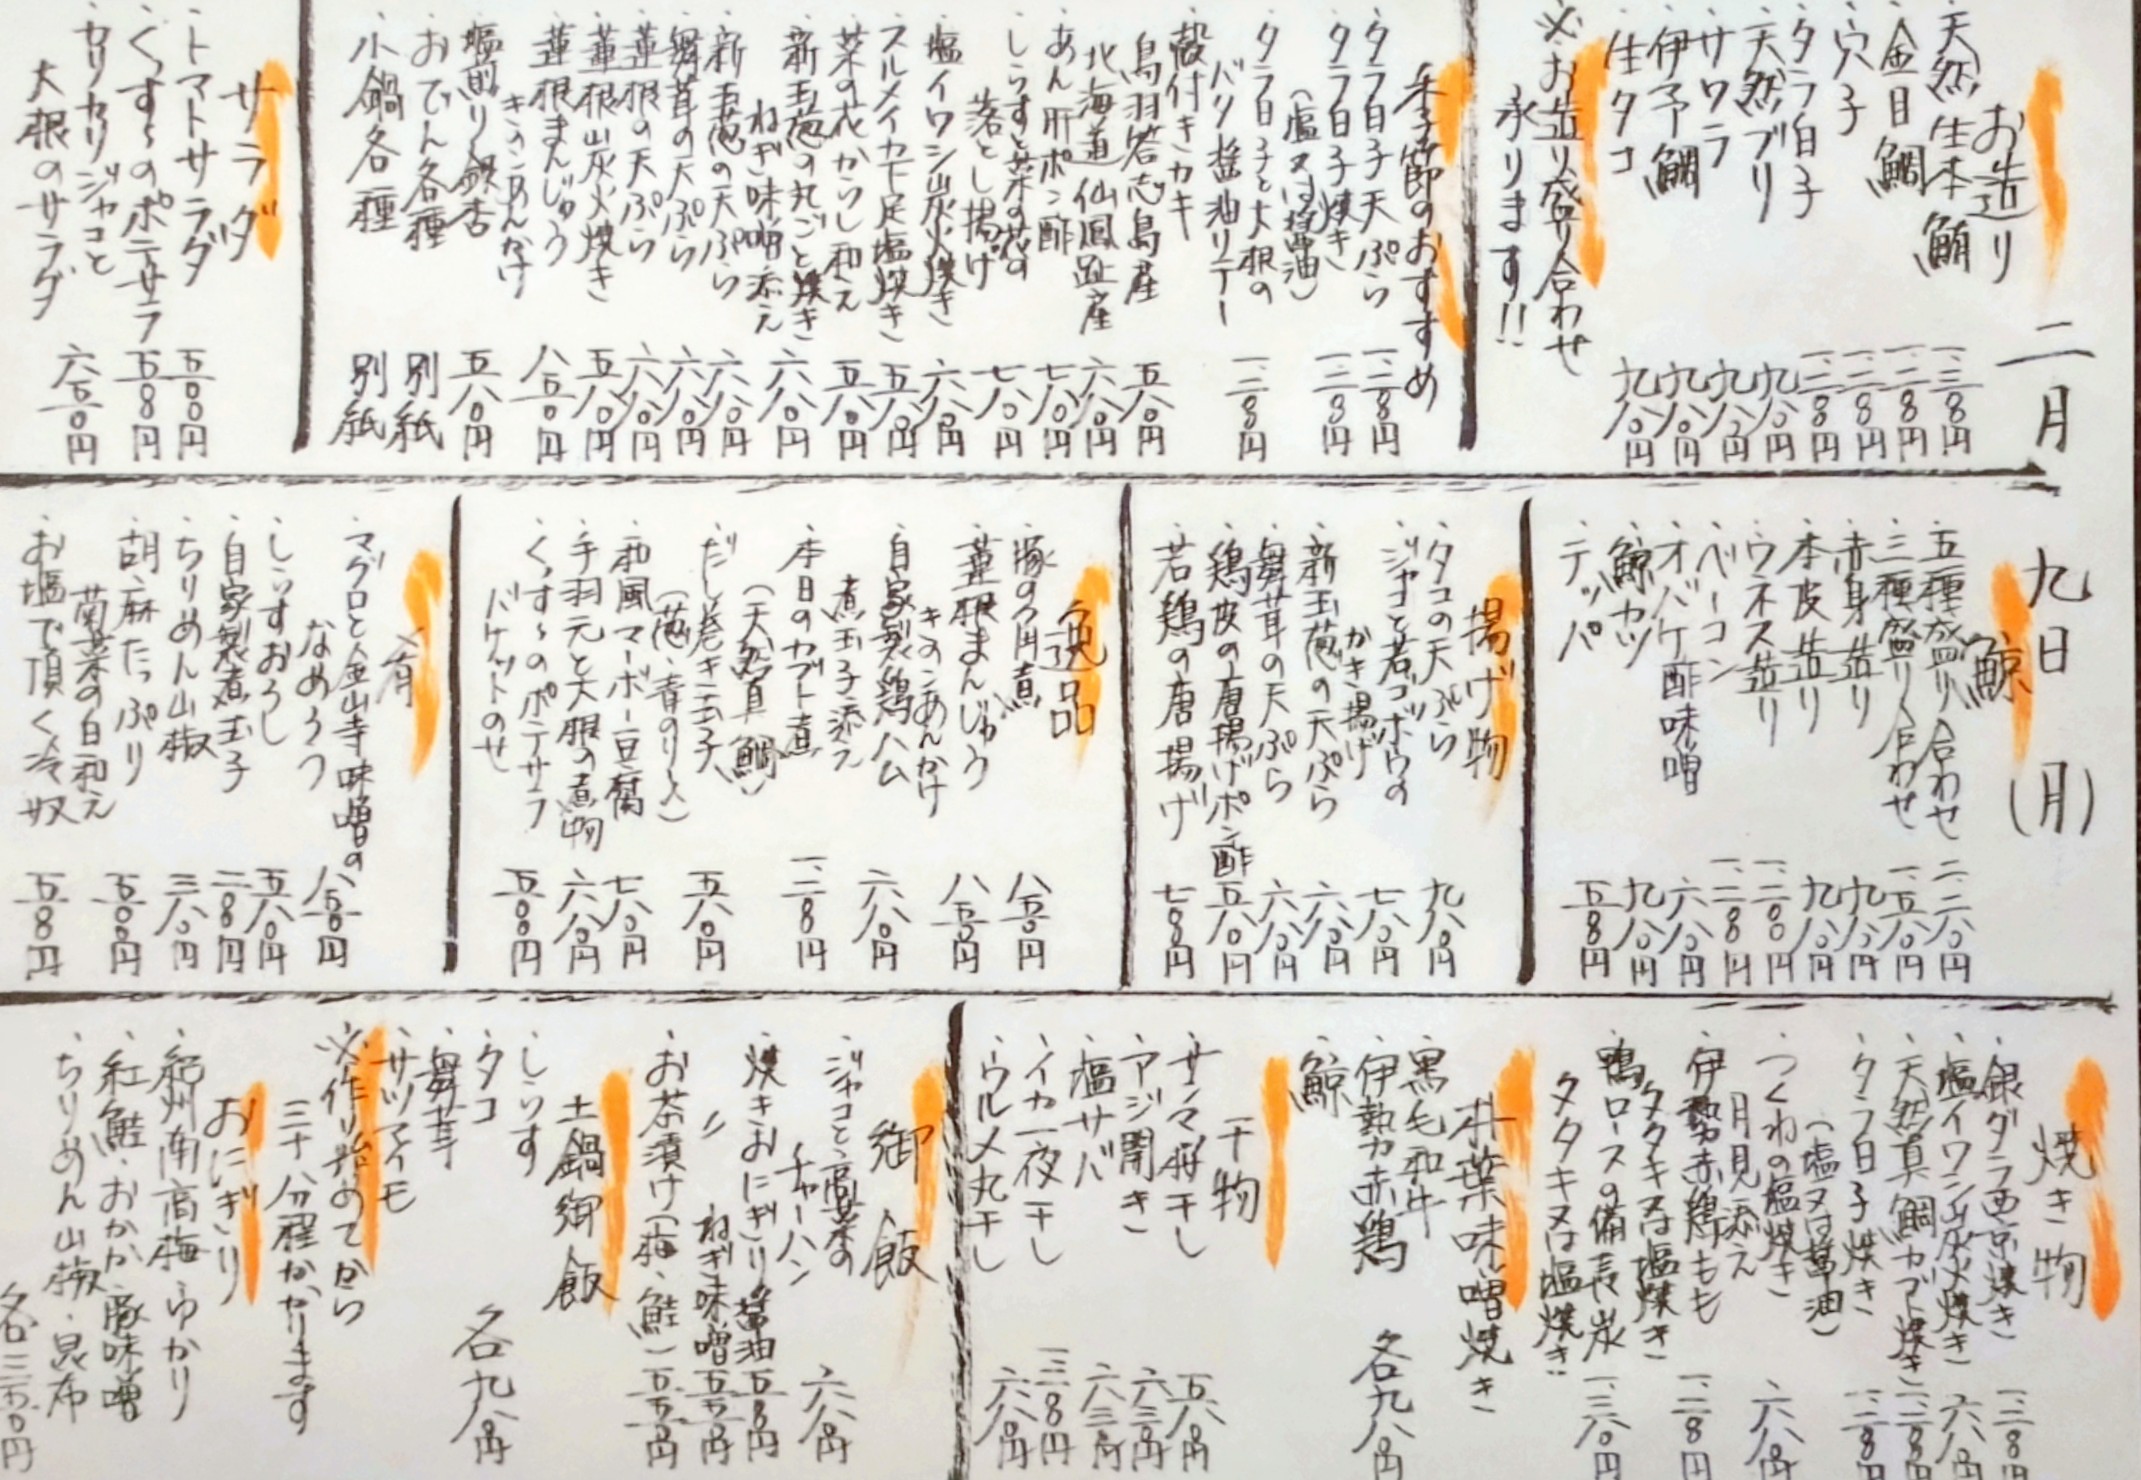 二月九日(月)
お造り
・天然生本鮪 一、三八〇円
・金目鯛 一、二八〇円
・穴子 一、二八〇円
・タラ白子 一、二八〇円
・天然ブリ 九八〇円
・サワラ 九八〇円
・伊予鯛 九八〇円
・生タコ 九八〇円
※お造り盛り合わせ
承ります!!
季節のおすすめ
・タラ白子天ぷら 一、二八〇円
・タラ白子焼き 一、二八〇円
(塩又は醤油)
・タラ白子と大根の
バタ醤油ソテー 一、二八〇円
・殻付きカキ
鳥羽答志島産 五八〇円
北海道仙鳳趾産 六八〇円
・あん肝ポン酢 七八〇円
・しらすと菜の花の
落とし揚げ 七八〇円
・塩イワシ炭火焼き 六八〇円
・スルメイカ下足塩焼き 五八〇円
・菜の花からし和え 五八〇円
・新玉葱の丸ごと焼き
ねぎ味噌添え 六八〇円
・新玉葱の天ぷら 六八〇円
・舞茸の天ぷら 六八〇円
・蓮根の天ぷら 六八〇円
・蓮根炭火焼き 五八〇円
・蓮根まんじゅう
きのこあんかけ 八五〇円
・塩煎り銀杏 五八〇円
・おでん各種 別紙
・小鍋各種 別紙
サラダ
・トマトサラダ 五〇〇円
・くずしのポテサラ 五五〇円
・カリカリジャコと
大根のサラダ 六五〇円
鯨
・五種盛り合わせ 二、二八〇円
・三種盛り合わせ 一、五八〇円
・赤身造り 九八〇円
・本皮造り 九八〇円
・ウネス造り 一、二〇〇円
・ベーコン 一、二八〇円
・オバケ酢味噌 六八〇円
・鯨カツ 九八〇円
・テッパ 五五〇円
揚げ物
・タコの天ぷら 九八〇円
・ジャコと若ゴボウの
かき揚げ 七八〇円
・新玉葱の天ぷら 六八〇円
・舞茸の天ぷら 六八〇円
・鶏皮の唐揚げポン酢 五八〇円
・若鶏の唐揚げ 七五〇円
逸品
・豚の角煮 八五〇円
・蓮根まんじゅう
きのこあんかけ 八五〇円
・自家製鶏ハム
煮玉子添え 六八〇円
・本日のカブト煮
(天然真鯛) 一、二八〇円
・だし巻き玉子
(葱・青のり入) 五八〇円
・和風マーボー豆腐 七八〇円
・手羽元と大根の煮物 六八〇円
・くずしのポテサラ
バケットのせ 五〇〇円
肴
・マグロと金山寺味噌の
なめろう 八五〇円
・しらすおろし 五八〇円
・自家製煮玉子 二五〇円
・ちりめん山椒 三八〇円
・胡麻たっぷり
菊菜の白和え 五〇〇円
・お塩で頂く冷奴 五五〇円
焼き物
・銀ダラ西京焼き 一、二八〇円
・塩イワシ炭火焼き 六八〇円
・天然真鯛カブト焼き 一、二八〇円
・タラ白子焼き
(塩又は醤油) 一、二八〇円
・つくねの塩焼き
月見添え 六八〇円
・伊勢赤鶏もも
タタキ又は塩焼き 一、二八〇円
・鴨ロースの備長炭
タタキ又は塩焼き 一、三八〇円
朴葉味噌焼き
・黒毛和牛
・伊勢赤鶏
・鯨
各九八〇円
干物
・サンマ桜干し 五八〇円
・アジ開き 六三〇円
・塩サバ 六三〇円
・イカ一夜干し 一、三八〇円
・ウルメ丸干し 六八〇円
御飯
・ジャコと高菜の
チャーハン 六八〇円
・焼きおにぎり醤油 五五〇円
〃 ねぎ味噌 五五〇円
・お茶漬け(梅・鮭) 五五〇円
土鍋御飯
・しらす
・タコ
・舞茸
・サツマイモ
各九八〇円
※作り始めてから
三十分程かかります
おにぎり
・紀州南高梅・ゆかり
・紅鮭・おかか・豚味噌
・ちりめん山椒・昆布
各三五〇円